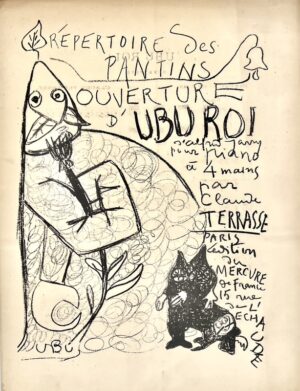 RÉPERTOIRE des
PANTINS
OUVERTURE
D'UBU ROI
d'alfred Jarry
pour piano
à 4 mains
par
Claude
TERRASSE
PARIS
édition
du
MERCVRE
de France
15 rue
de L'
ECHAUDÉ
UBU